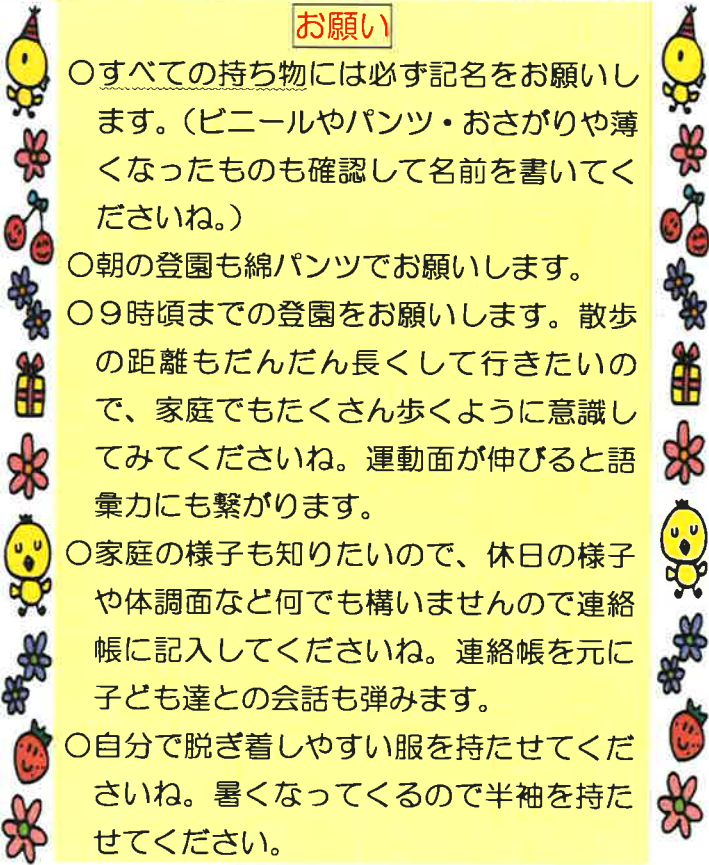 お願い
○すべての持ち物には必ず記名をお願いし
ます。（ビニールやパンツ・おさがりや薄
くなったものも確認して名前を書いてく
ださいね。）
○朝の登園も綿パンツでお願いします。
○９時頃までの登園をお願いします。散歩
の距離もだんだん長くして行きたいの
で、家庭でもたくさん歩くように意識し
てみてくださいね。運動面が伸びると語
彙力にも繋がります。
○家庭の様子も知りたいので、休日の様子
や体調面など何でも構いませんので連絡
帳に記入してくださいね。連絡帳を元に
子ども達との会話も弾みます。
○自分で脱ぎ着しやすい服を持たせてくだ
さいね。暑くなってくるので半袖を持た
せてください。